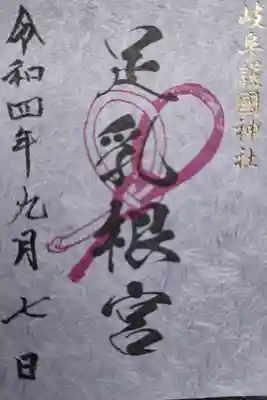 岐阜護國神社
足乳根宮
令和四年九月七日